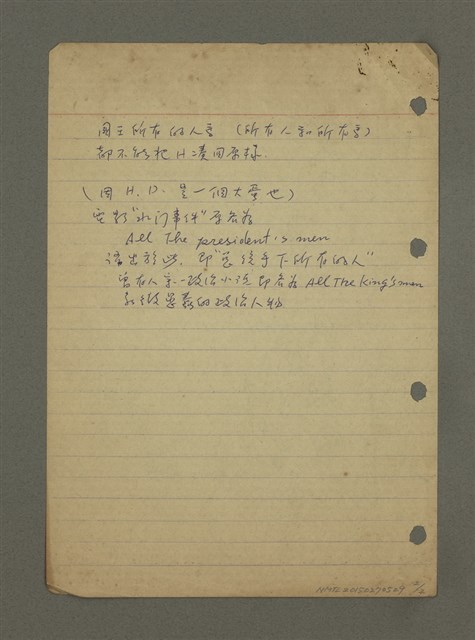 國王所有的人馬 (所有人和所有馬)
都不能把H湊回原樣.
(因 H. D. 是一個大蛋也)
電影“水门事件”原名為
All The president's men
語出於此, 即“總統手下所有的人”
曾有人寫一政治小说 即名為 All The King's men
諷
的政治人物
2/2